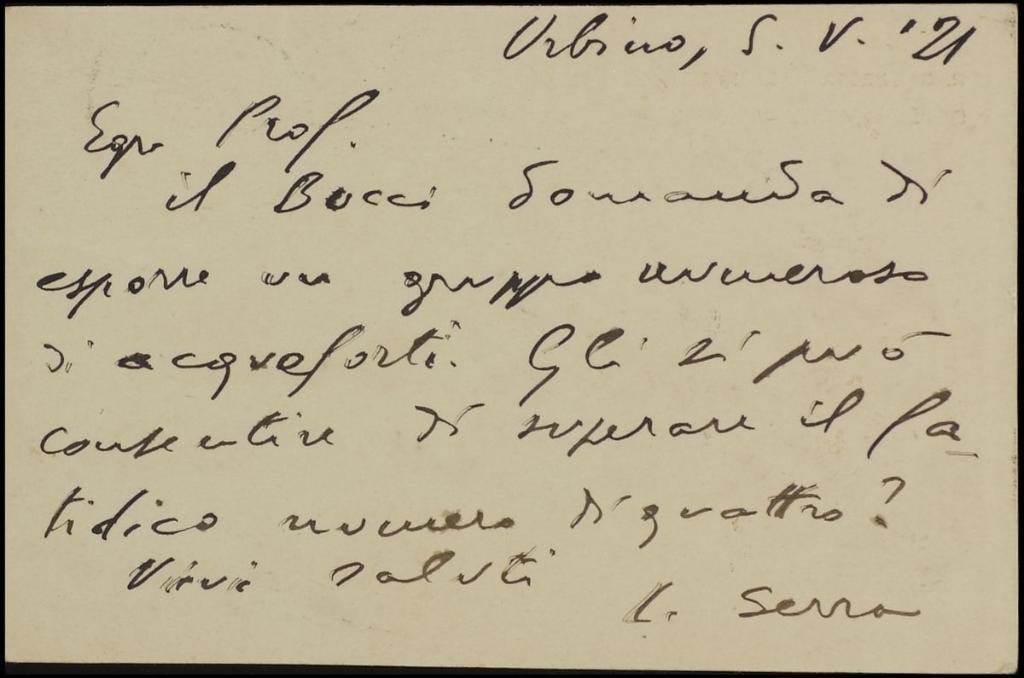 Urbino, 5. V. '21
Egr. Prof.
il Bucci domanda di
esporre un gruppo numeroso
di acqueforti. Gli si può
consentire di superare il fa-
tidico numero di quattro?
Vivi saluti
L. Serra